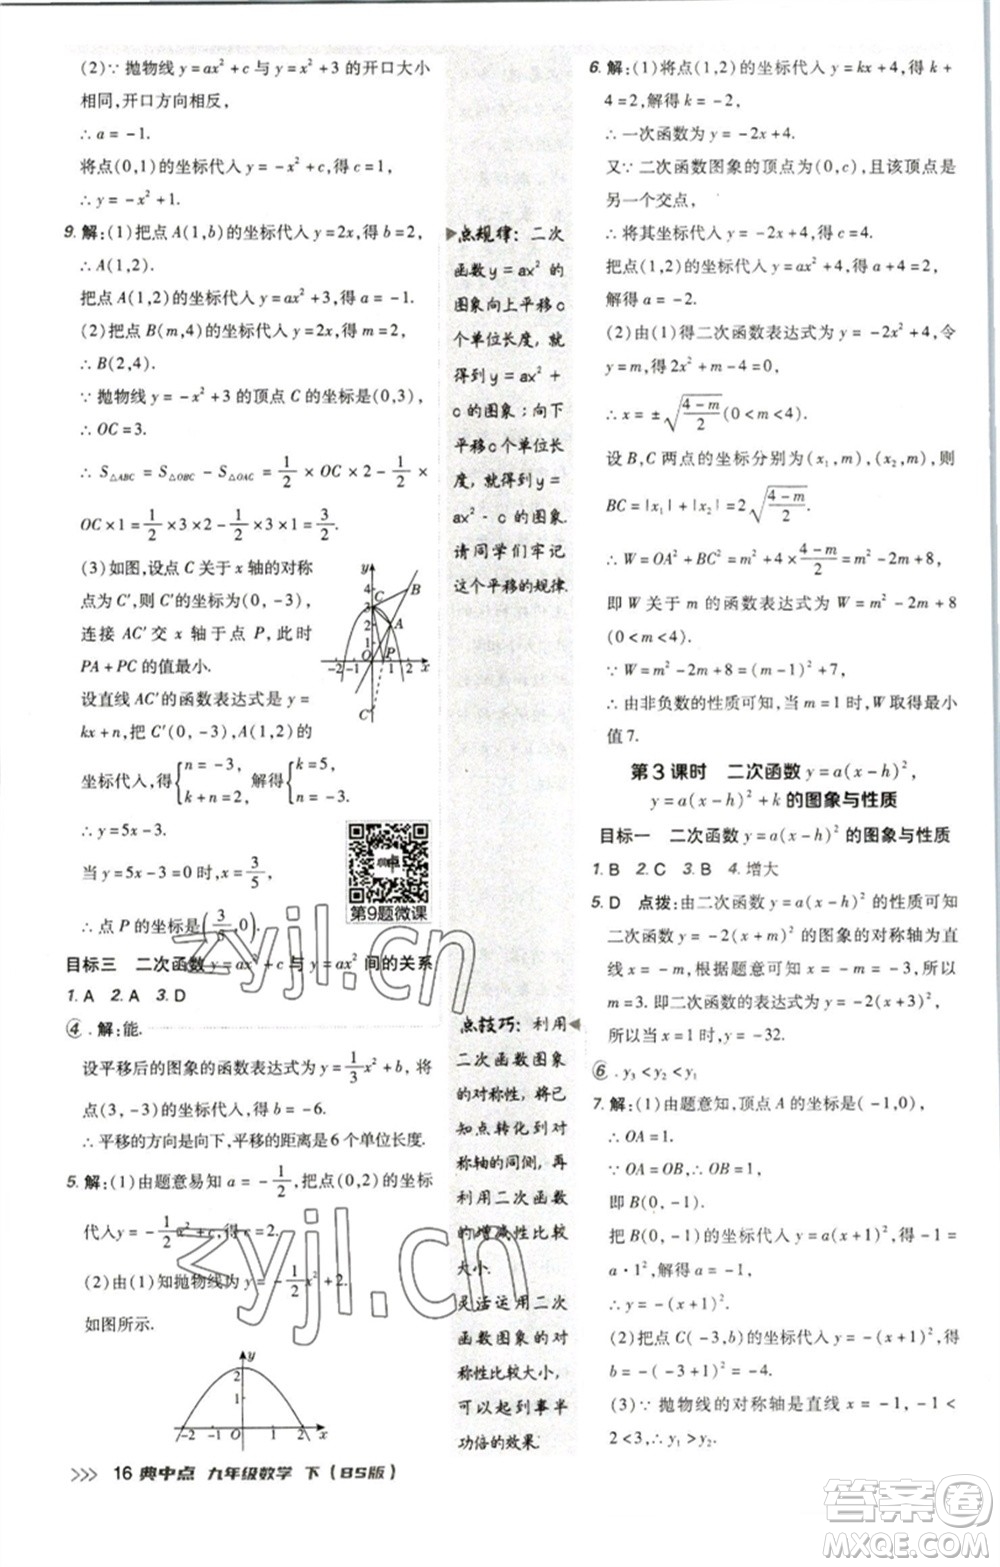 (2)∵ 抛物线 y=ax²+c 与 y=x² 的开口大小
相同,开口方向相反,
∴ a=-1.
将点(0,1)的坐标代入 y=-x²+c,得 c=1,
∴ y=-x²+1.
9. 解:(1)把点 A(1,b)的坐标代入 y=2x,得 b=2,
∴ A(1,2).
把点 A(1,2)的坐标代入 y=ax²+3,得 a=-1.
(2)把点 B(m,4)的坐标代入 y=2x,得 m=2,
∴ B(2,4).
∵ 抛物线 y=-x²+3 的顶点 C 的坐标是(0,3),
∴ OC=3.
∴ S△ABC=S△OBC-S△OAC=1/2×OC×2-1/2×
OC×1=1/2×3×2-1/2×3×1=3/2.
(3)如图,设点 C 关于 x 轴的对称
点为 C′,则 C′的坐标为(0,-3),
连接 AC′交 x 轴于点 P,此时
PA+PC 的值最小.
设直线 AC′的函数表达式是 y=
kx+n,把 C′(0,-3),A(1,2)的
坐标代入,得{n=-3, k+n=2, 解得{k=5, n=-3.
∴ y=5x-3.
当 y=5x-3=0 时,x=3/5,
∴ 点 P 的坐标是(3/5,0).
y
4
3
2
1
C
B
A
-2 -1 O P 1 2 x
C′
第9题微课
目标三 二次函数 y=ax²+c 与 y=ax² 间的关系
1. A 2. A 3. D
④. 解:能.
设平移后的图象的函数表达式为 y=1/3x²+b,将
点(3,-3)的坐标代入,得 b=-6.
∴ 平移的方向是向下,平移的距离是 6 个单位长度.
5. 解:(1)由题意易知 a=-1/2,把点(0,2)的坐标
代入 y=-1/2x²+c,得 c=2.
(2)由(1)知抛物线为 y=-1/2x²+2.
如图所示.
y
2
1
-2 -1 O 1 2 x
点规律:二次
函数 y=ax² 的
图象向上平移 c
个单位长度,就
得到 y=ax²+
c 的图象;向下
平移 c 个单位长
度,就得到 y=
ax²-c 的图象.
请同学们牢记
这个平移的规律.
点技巧:利用
二次函数图象
的对称性,将已
知点转化到对
称轴的同侧,再
利用二次函数
的增减性比较
大小.
灵活运用二次
函数图象的对
称性比较大小,
可以起到事半
功倍的效果.
6. 解:(1)将点(1,2)的坐标代入 y=kx+4,得 k+
4=2,解得 k=-2,
∴ 一次函数为 y=-2x+4.
又∵ 二次函数图象的顶点为(0,c),且该顶点是
另一个交点,
∴ 将其坐标代入 y=-2x+4,得 c=4.
把点(1,2)的坐标代入 y=ax²+4,得 a+4=2,
解得 a=-2.
(2)由(1)得二次函数表达式为 y=-2x²+4,令
y=m,得 2x²+m-4=0,
∴ x=±√((4-m)/2)(0<m<4).
设 B,C 两点的坐标分别为(x₁,m),(x₂,m),则
BC=|x₁|+|x₂|=2√((4-m)/2),
∴ W=OA²+BC²=m²+4×(4-m)/2=m²-2m+8,
即 W 关于 m 的函数表达式为 W=m²-2m+8
(0<m<4).
∵ W=m²-2m+8=(m-1)²+7,
∴ 由非负数的性质可知,当 m=1 时,W 取得最小
值 7.
第 3 课时 二次函数 y=a(x-h)²,
y=a(x-h)²+k 的图象与性质
目标一 二次函数 y=a(x-h)² 的图象与性质
1. B 2. C 3. B 4. 增大
5. D 点拨:由二次函数 y=a(x-h)² 的性质可知
二次函数 y=-2(x+m)² 的图象的对称轴为直
线 x=-m,根据题意可知 -m=-3,所以
m=3.即二次函数的表达式为 y=-2(x+3)²,
所以当 x=1 时,y=-32.
⑥. y₃<y₂<y₁
7. 解:(1)由题意知,顶点 A 的坐标是(-1,0),
∴ OA=1.
∵ OA=OB,∴ OB=1,
即 B(0,-1).
把 B(0,-1)的坐标代入 y=a(x+1)²,得 -1=
a·1²,解得 a=-1,
∴ y=-(x+1)².
(2)把点 C(-3,b)的坐标代入 y=-(x+1)²,得
b=-(-3+1)²=-4.
(3)∵ 抛物线的对称轴是直线 x=-1,-1<
2<3,
∴ y₁>y₂.
16 典中点 九年级数学 下(BS版)
zyjl.cn
zyjl.cn
答案圈
MXQE.COM